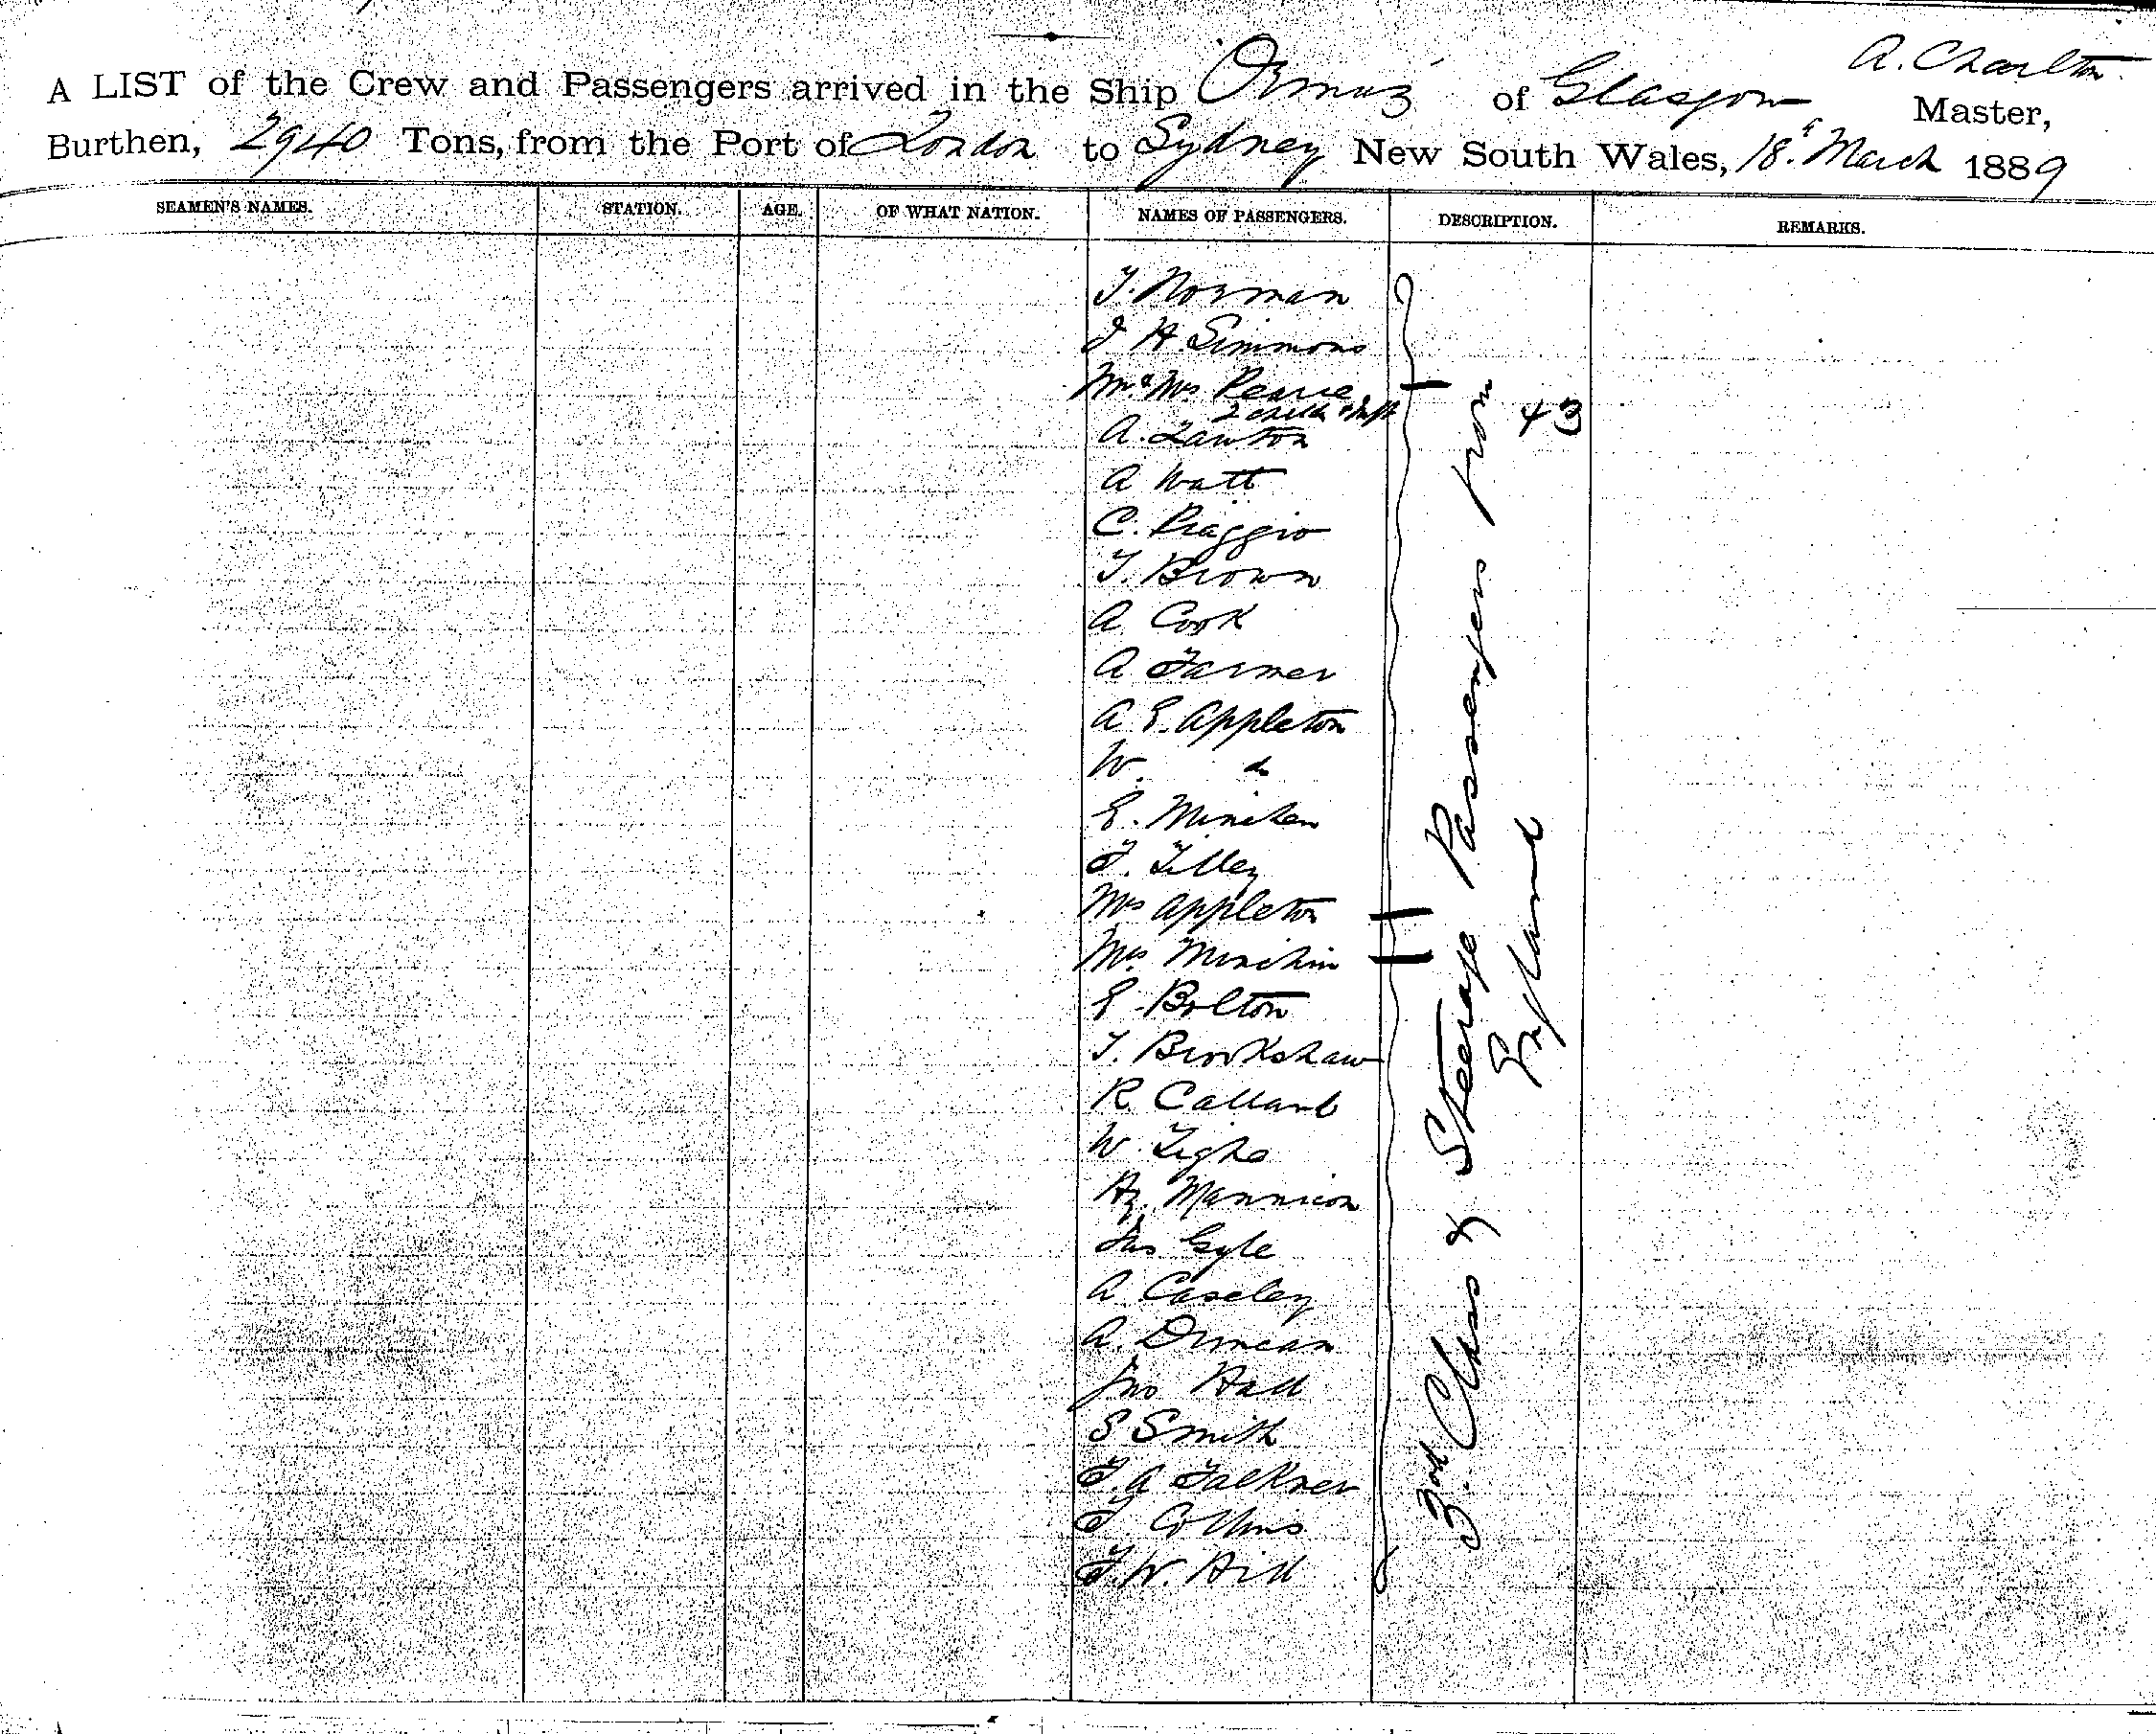 A. Charlton
A LIST of the Crew and Passengers arrived in the Ship Ormuz of Glasgow Master,
Burthen, 2940 Tons, from the Port of London to Sydney New South Wales, 18th March 1889
SEAMEN'S NAMES. STATION. AGE. OF WHAT NATION. NAMES OF PASSENGERS. DESCRIPTION. REMARKS.
T. Norman
J H. Simmons
Mr & Mrs Pearce
2 child & Inft
A. Lawton
A Watt
C. Piaggio
T. Brown
A Cook
A Farmer
A E. Appleton
W. do
E. Minchen
F. Tilley
Mrs Appleton
Mrs Minchin
E Bolton
T. Brookshaw
R. Callant
W Tighe
Hy. Mannion
Jas Gyle
A Caseley
A. Duncan
Jno Hall
S Smith
F. A Falkner
F Collins
F. W. Hill
3rd Class & Steerage Passengers from
England
43